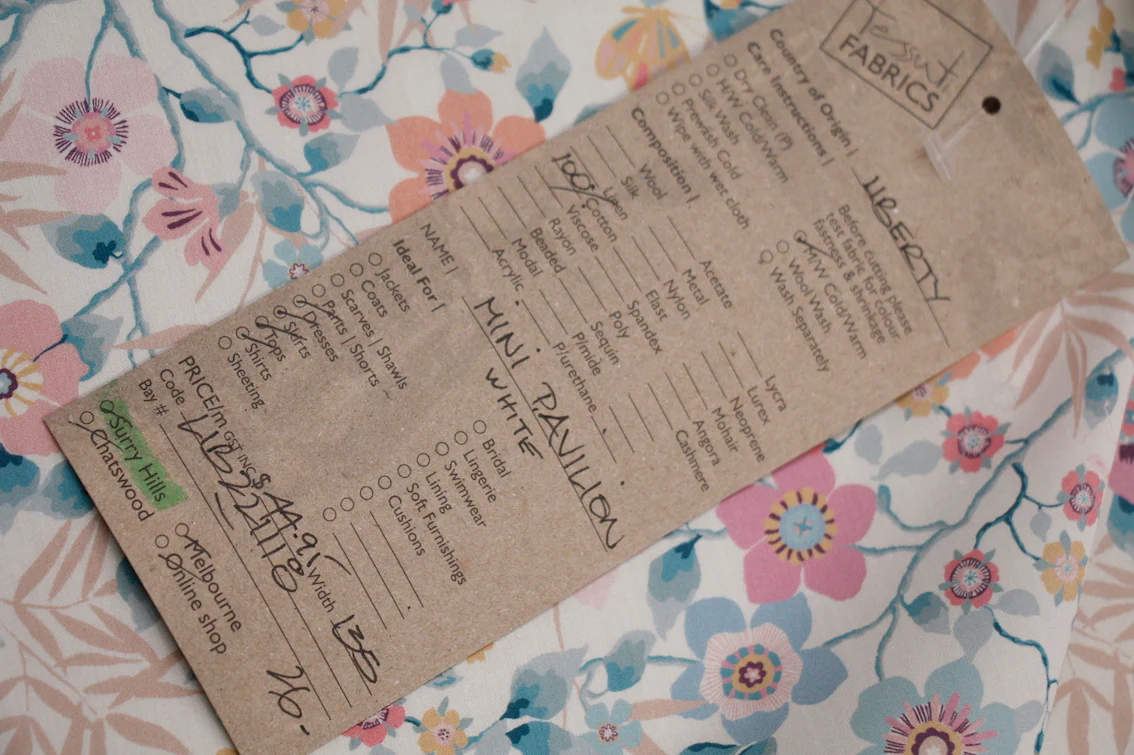 Tessuti
FABRICS
Country of Origin |
LIBERTY
Care Instructions |
Dry Clean (P)
H/W Cold/Warm
Silk Wash
Prewash Cold
Wipe with wet cloth
Before cutting please
test fabric for colour
fastness & shrinkage
M/W Cold/Warm
Wool Wash
Wash Separately
Composition |
Wool
Silk
Linen
100% Cotton
Viscose
Rayon
Beaded
Modal
Acrylic
Acetate
Metal
Nylon
Elast
Spandex
Poly
Sequin
P/mide
P/urethane
Lycra
Lurex
Neoprene
Mohair
Angora
Cashmere
NAME |
MINI PAVILION
WHITE
Ideal For |
Jackets
Coats
Scarves | Shawls
Pants | Shorts
Dresses
Skirts
Tops
Shirts
Sheeting
Bridal
Lingerie
Swimwear
Lining
Soft Furnishings
Cushions
PRICE/m GST INC $ 44.95 Width 135
Code LIB 2211110
Bay # 26-
Surry Hills
Chatswood
Melbourne
Online shop